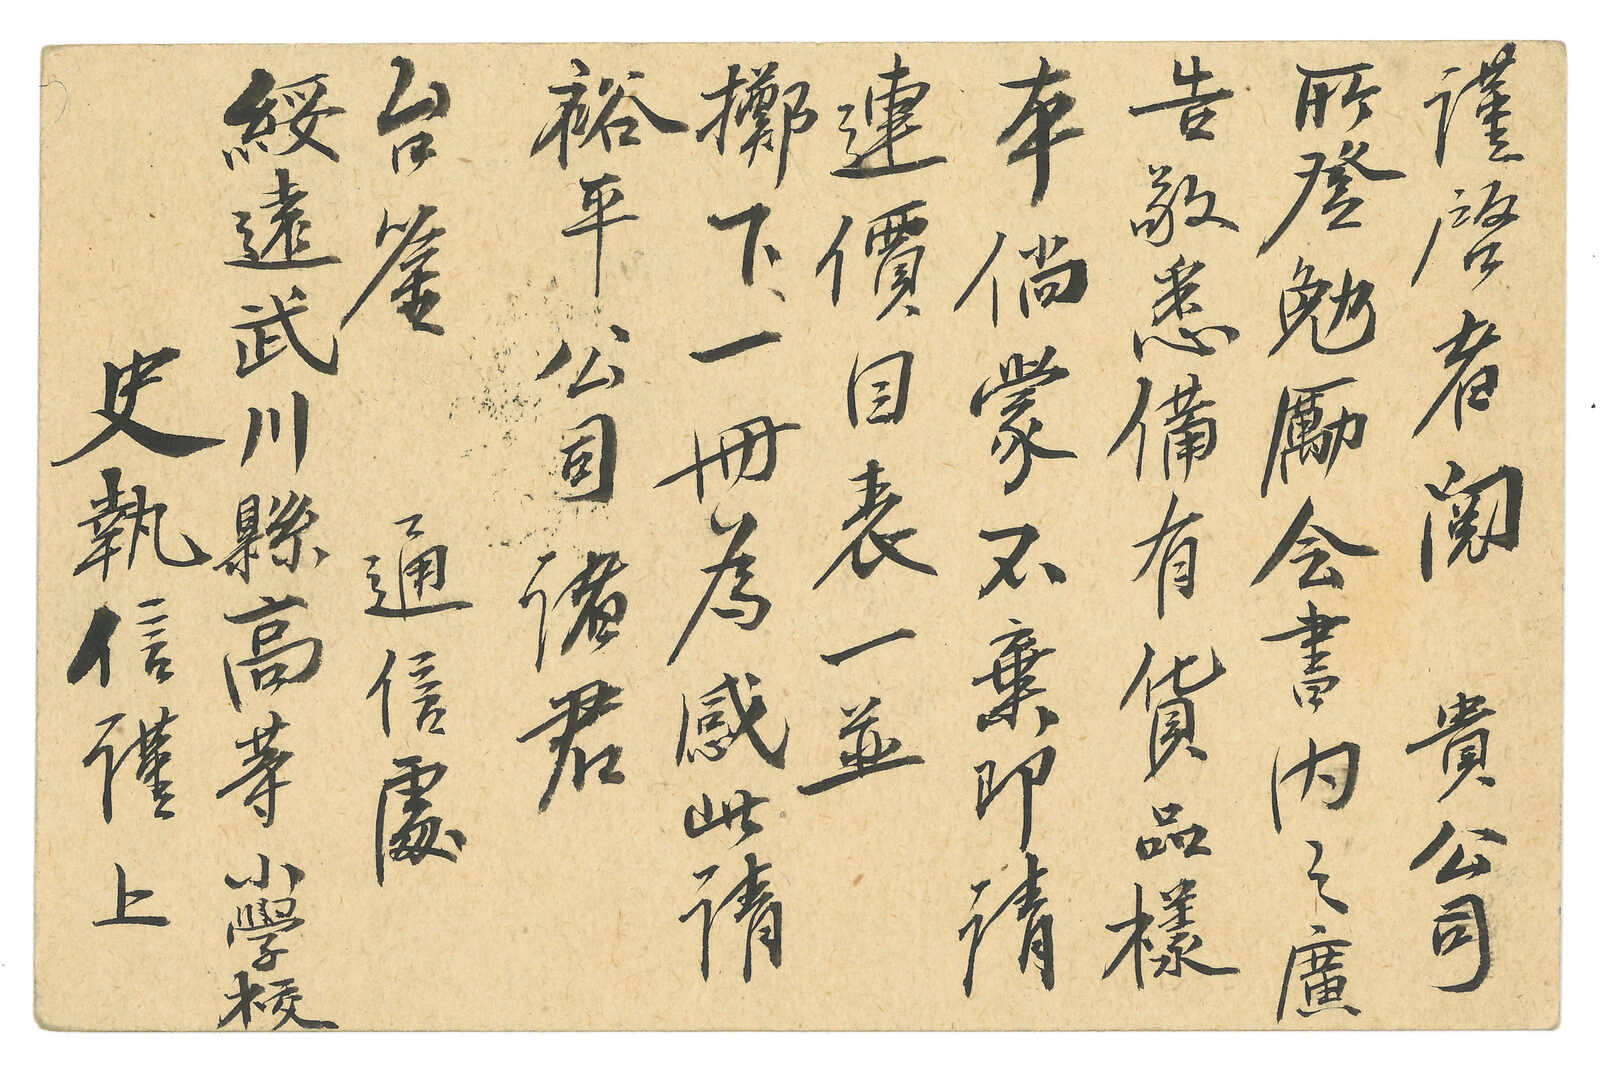 謹啓者閱 貴公司
所登勉勵会書內之廣
告敬悉備有貨品樣
本倘蒙不棄即請
連價目表一並
擲下一冊為感此請
裕平公司諸君
台鉴 通信處
綏遠武川縣高等小學校
史執信謹上